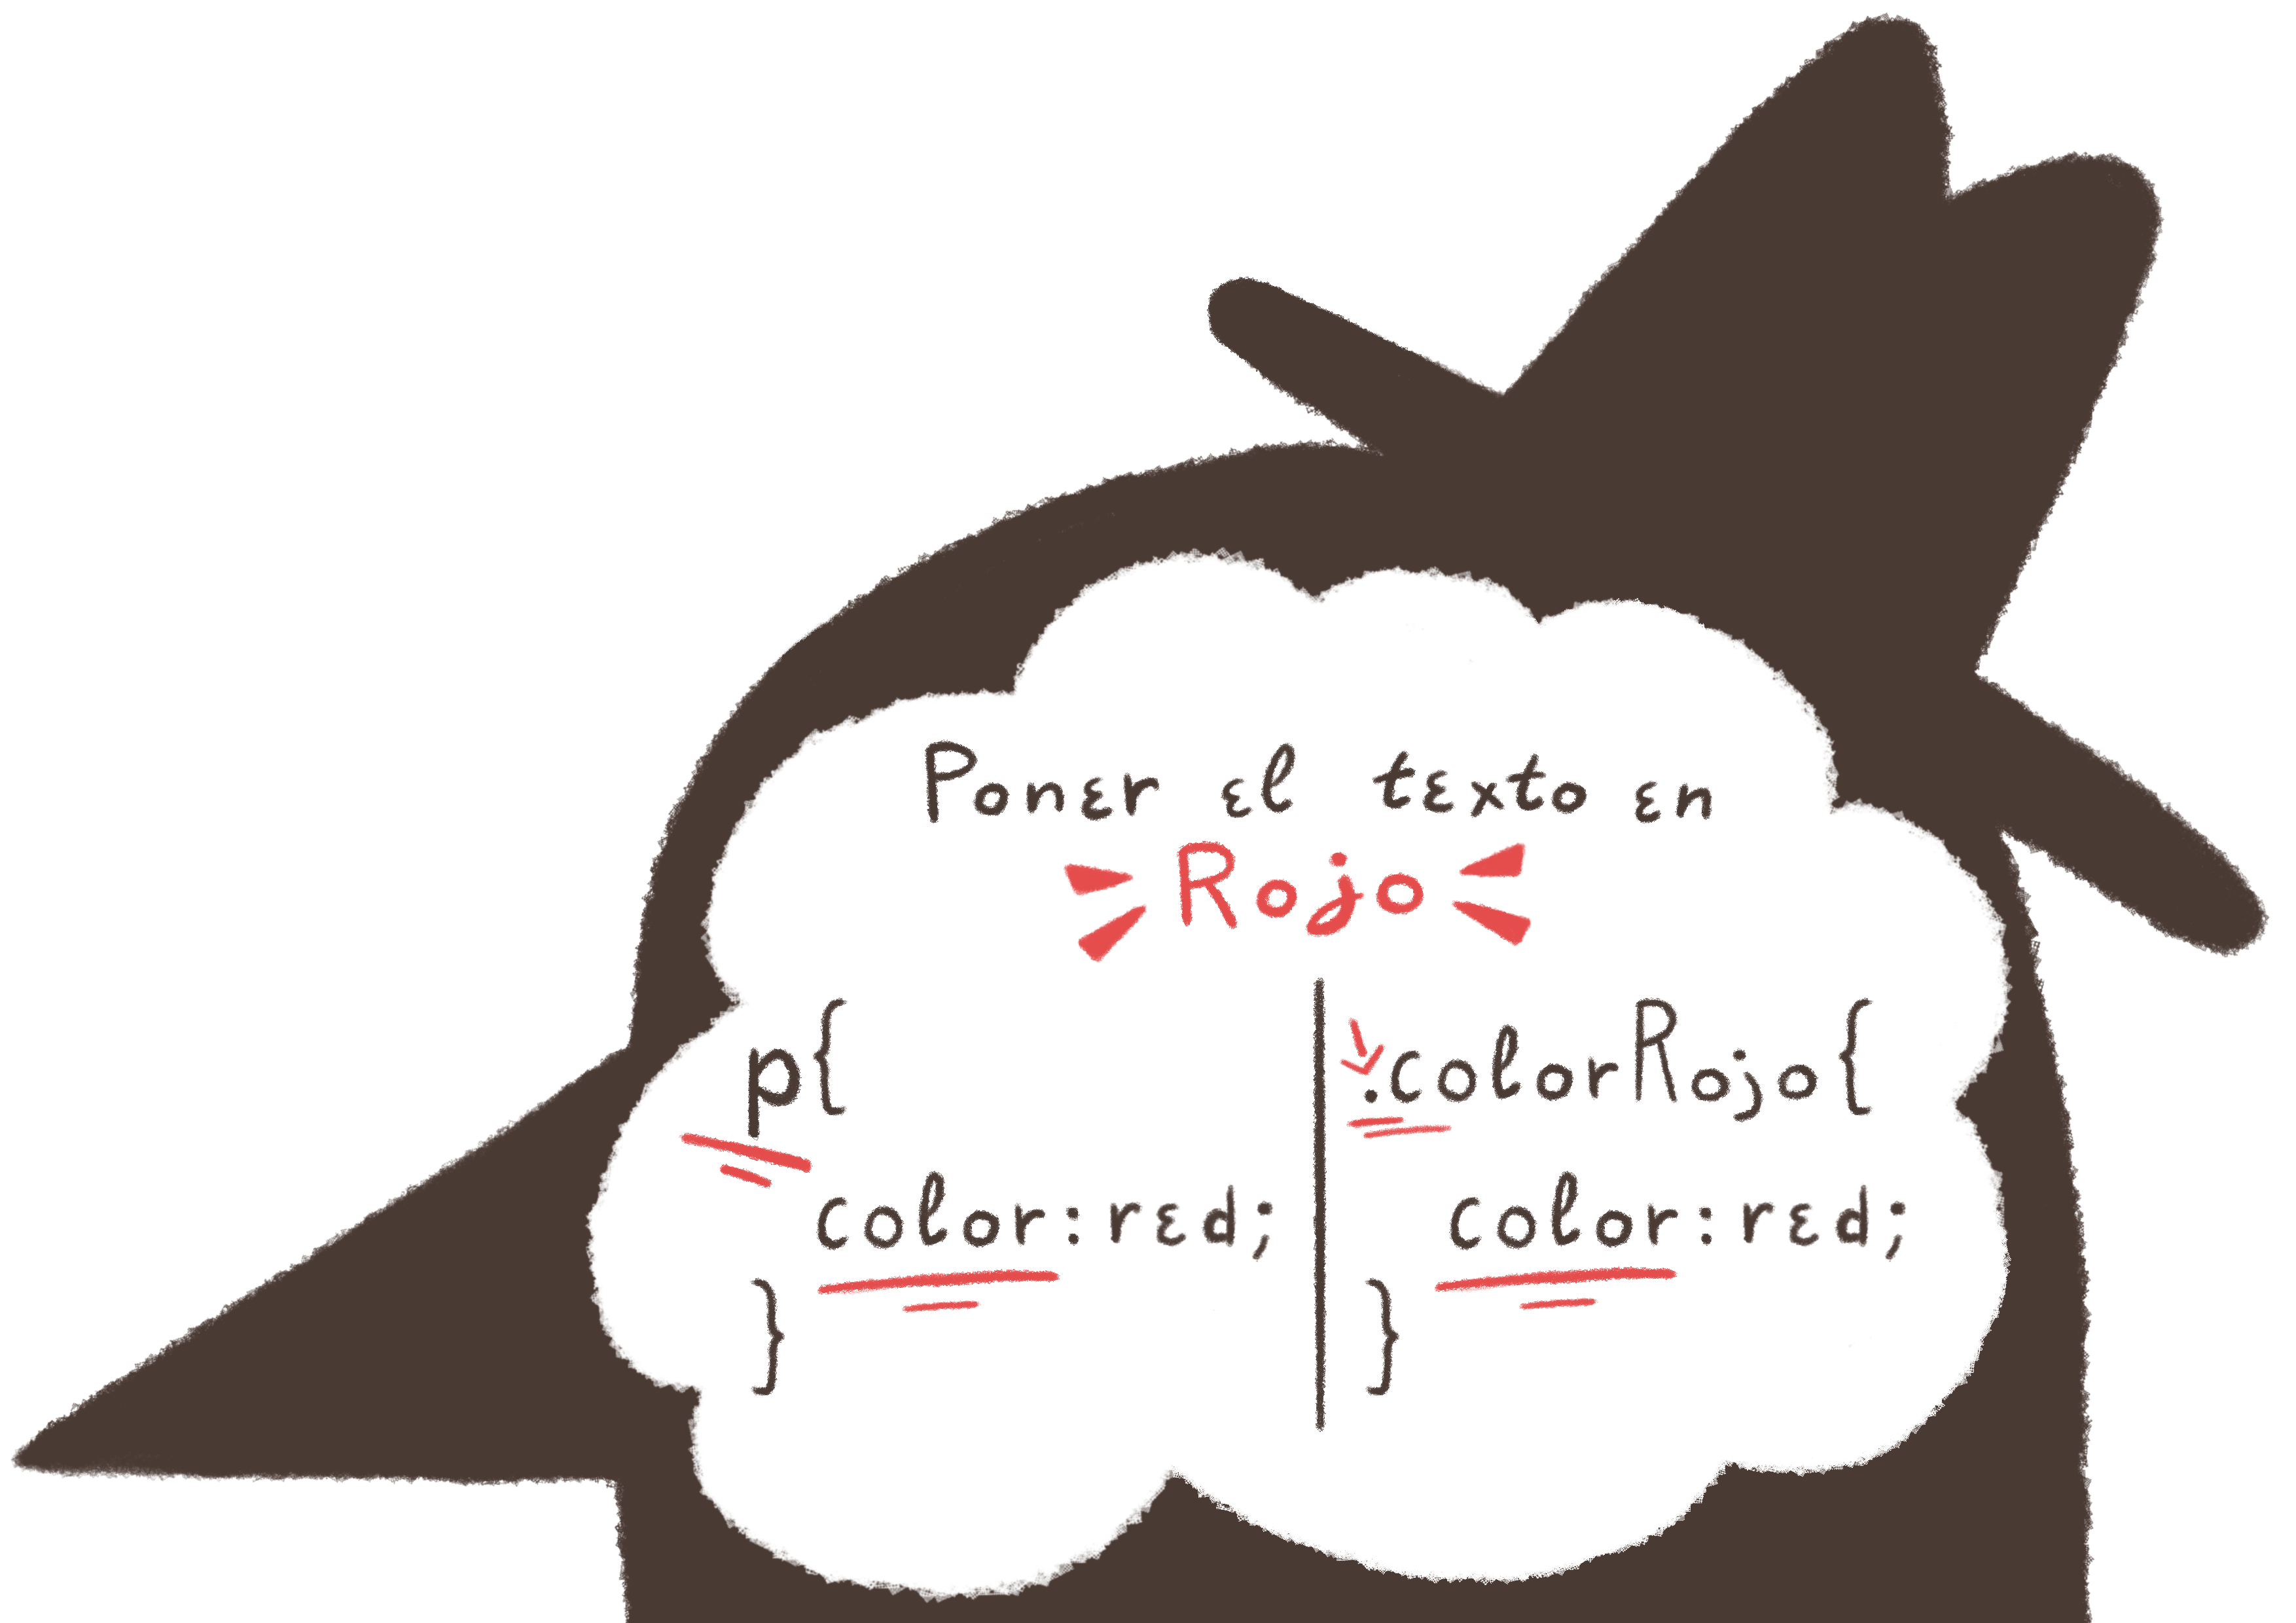 Poner el texto en
Rojo
p{
color:red;
}
.colorRojo{
color:red;
}